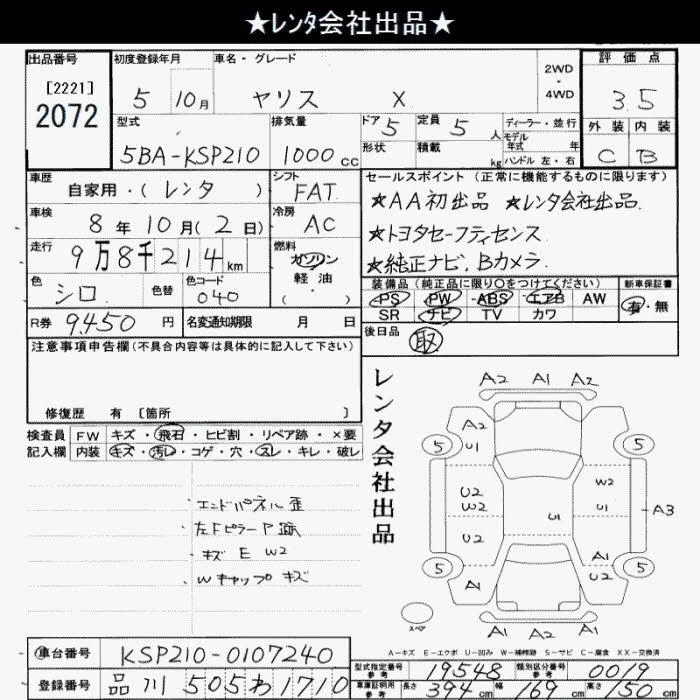 ★レンタ会社出品★
出品番号 初度登録年月 車名・グレード 2WD・4WD 評価点
[2221]
2072
5 10月 ヤリス X 3.5
型式 排気量 ドア 5 定員 5 人 ディーラー・並行 外装 内装
モデル年式 年
5BA-KSP210 1000cc 形状 積載 kg ハンドル 左・右 C B
車歴 自家用・(レンタ) シフト FAT セールスポイント(正常に機能するものに限ります)
車検 8年10月(2日) 冷房 AC ★AA初出品 ★レンタ会社出品
走行 9万8千214km 燃料 ガソリン ★トヨタセーフティセンス
軽油 ★純正ナビ、Bカメラ
色 シロ 色替 色コード 040 ( )
装備品(純正品に限り○をつけてください) 新車保証書
PS PW ABS エアB AW 有・無
SR ナビ TV カワ
R券 9450円 名変通知期限 月 日 後日品 取
注意事項申告欄(不具合内容等は具体的に記入して下さい)
修復歴 有 [箇所 ]
検査員 FW キズ・飛石・ヒビ割・リペア跡・×要
記入欄 内装 キズ・汚レ・コゲ・穴・スレ・キレ・破レ
・エンドパネル歪
・左Fピラー P 跡
・キズ E W2
・Wキャップ キズ
レンタ会社出品
A2 A1 A2
A2
U1
5 5
U2
W2
W2
U1 U1
A3
U2
A1
U2
5 5
A1
A1 A2 A1
スペア
A－キズ E－エクボ U－凹み W－補修跡 S－サビ C－腐食 XX－交換済
車台番号 KSP210-0107240
登録番号 品川 505 わ 1710
型式指定番号 参考 19548 類別区分番号 参考 0019
車庫証明用 参考 長さ 394cm 幅 169cm 高さ 150cm